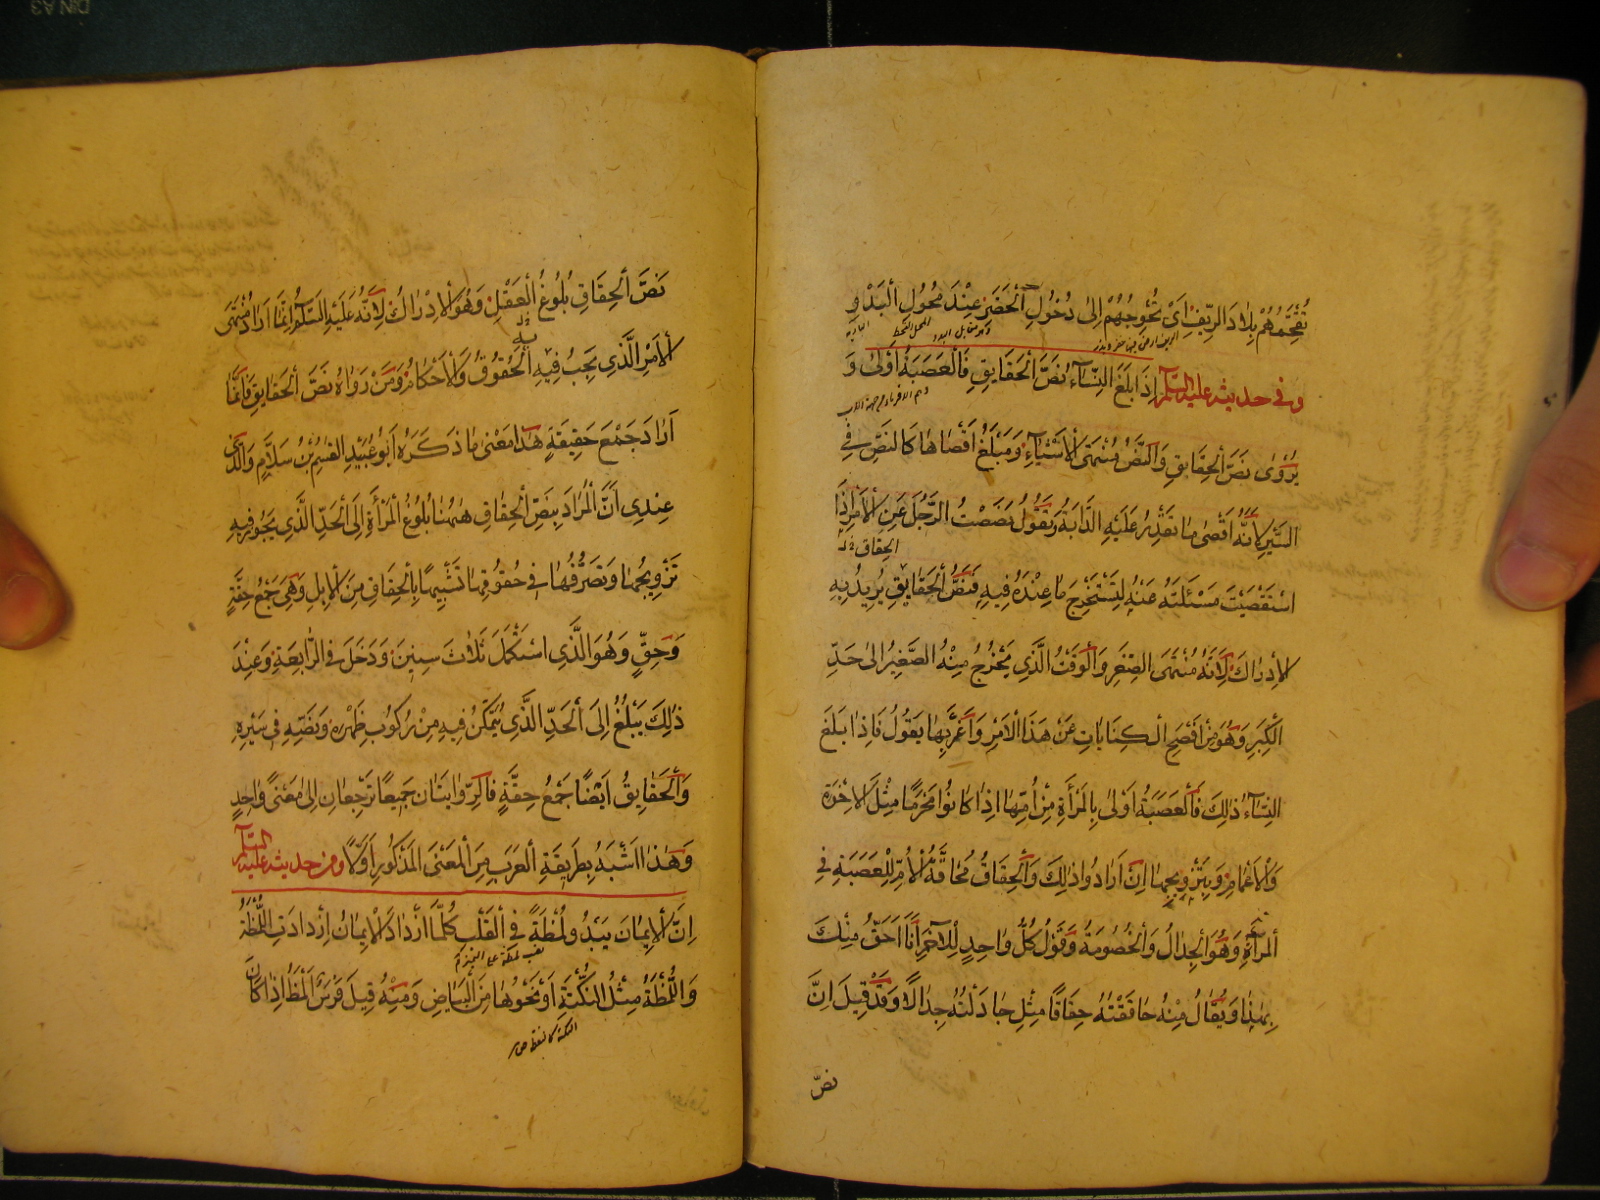 تُقَحِّمُهُمْ بِلَادَ الرِّيْفِ اَىْ تُحْوِجُهُمْ اِلىٰ دُخُولِ الْحَضَرِ عِنْدَ مُحُولِ الْبَدْوِ
وفى حديثه عليه السَّلَام اِذَا بَلَغَ النِّسَآءُ نَصَّ الْحَقَايِقِ فَالْعَصَبَةُ اَوْلىٰ وَ
يُرْوٰى نَصَّ الْحِقَايقِ وَالنَّصُّ مُنْتَهَى الْاَشْيَآءِ وَمَبْلَغُ اَقْصَاهَا كَالنَصِّ فِى
السَّيْرِ لِاَنَّهُ اَقْصٰى مَا تَقْدِرُ عَلَيْهِ الدَّابَةُ وَتَقُولُ نَصَصْتُ الرَّجُلَ عَنِ الْاَمْرِ اِذَا
الحِقاق
اسْتَقْصَيْتَ مَسْئَلَتَهُ عَنْهُ لِتَسْتَخْرِجَ مَا عِنْدَهُ فِيهِ فَنَصُّ الْحَقَايِقِ يُرِيدُ بِهِ
الْاِدْرَاكَ لِاَنَّهُ مُنْتَهَى الصِّغَرِ وَالْوَقْتُ الَّذِى يَخْرُجُ مِنْهُ الصَّغِيْرُ اِلىٰ حَدِّ
الْكِبَرِ وَهُوَ مِنْ اَفْصَحِ الْكِنَايَاتِ عَنْ هَذَا الْاَمْرِ وَاَغْرَبِهَا يَقُولُ فَاِذَا بَلَغَ
النِّسَآءُ ذٰلِكَ فَالْعَصَبَةُ اَوْلىٰ بِالْمَرْأَةِ مِنْ اُمِّهَا اِذَا كَانُوا مَحْرَمًا مِثْلَ الْاِخْوَةِ
وَالْاَعْمَامِ وَبِتَزْوِيجِهَا اِنْ اَرَادُوا ذٰلِكَ وَالْحِقَاقُ مُحَاقَّةُ الْاُمِّ لِلْعَصَبَةِ فِى
الْمَرْأَةِ وَهُوَ الْجِدَالُ وَالْخُصُومَةُ وَقَوْلُ كُلِّ وَاحِدٍ لِلْاٰخَرِ اَنَا اَحَقُّ مِنْكَ
بِهٰذَا وَيُقَالُ مِنْهُ حَاقَقْتُهُ حِقَاقًا مِثْلِ جَادَلْتُهُ جِدَالًا وَقَدْ قِيلَ اِنَّ
نصّ
نَصَّ الْحِقَاقِ بُلُوغُ الْعَقْلِ وَهُوَ الْاِدْرَاكُ لِاَنَّهُ عَلَيْهِ السَّلَامُ اِنَّمَا اَرَادَ مُنْتَهَى
الْاَمْرِ الَّذِى يَجِبُ فِيْهِ الْحُقُوقُ وَالْاَحْكَامُ وَمَنْ رَوَاهُ نَصَّ الْحَقَايِقِ فَاِنَّمَا
اَرَادَ جَمْعَ حَقِيقَةٍ هٰذَا مَعْنٰى مَا ذَكَرَهُ اَبُو عُبَيْدٍ القٰسِمُ بْنُ سَلَّامٍ وَالَّذِى
عِنْدِى اَنَّ الْمُرَادَ بِنَصِّ الْحِقَاقِ هٰهُنَا بُلُوغُ الْمَرْأَةِ اِلَى الْحَدِّ الَّذِى يَجُوزُ فِيهِ
تَزْوِيجُهَا وَتَصَرُّفُهَا فِى حُقُوقِهَا تَشْبِيهًا بِالْحِقَاقِ مِنَ الْاِبِلِ وَهِىَ جَمْعُ حِقَّةٍ
وَحِقٍّ وَهُوَ الَّذِى اسْتَكْمَلَ ثَلَاثَ سِنِيْنَ وَدَخَلَ فِى الرَّابِعَةِ وَعِنْدَ
ذٰلِكَ يَبْلُغُ اِلَى الْحَدِّ الَّذِى يُتَمَكَّنُ فِيهِ مِنْ رُكُوبِ ظَهْرِهِ وَنَصِّهِ فِى سَيْرِهِ
وَالْحَقَايِقُ اَيْضًا جَمْعُ حِقَّةٍ فَالرِّوَايَتَانِ جَمِيعًا تَرْجِعَانِ اِلىٰ مَعْنًى وَاحِدٍ
وَهٰذَا اَشْبَهُ بِطَرِيقَةِ الْعَرَبِ مِنَ الْمَعْنَى الْمَذْكُورِ اَوَّلًا ومن حديثه عليه السَّلَام
اِنَّ الْاِيْمَانَ يَبْدُو لُمْظَةً فِى الْقَلْبِ كُلَّمَا ازْدَادَ الْاِيمَانُ اِزْدَادَتِ اللُّمْظَةُ
نصب لمظة على التميز
وَاللُّمْظَةُ مِثْلُ النُّكْتَةِ اَوْ نَحْوِهَا مِنَ الْبَيَاضِ وَمِنْهُ قِيلَ فَرَسٌ اَلْمَظُ اِذَا كَانَ
النكتة كالنقطة